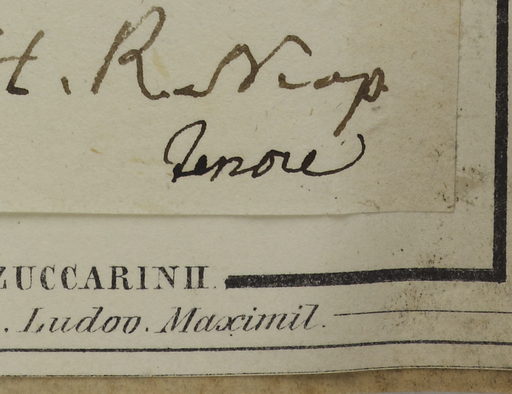 H. R. Neap
Tenore
ZUCCARINII.
. Ludov. Maximil.